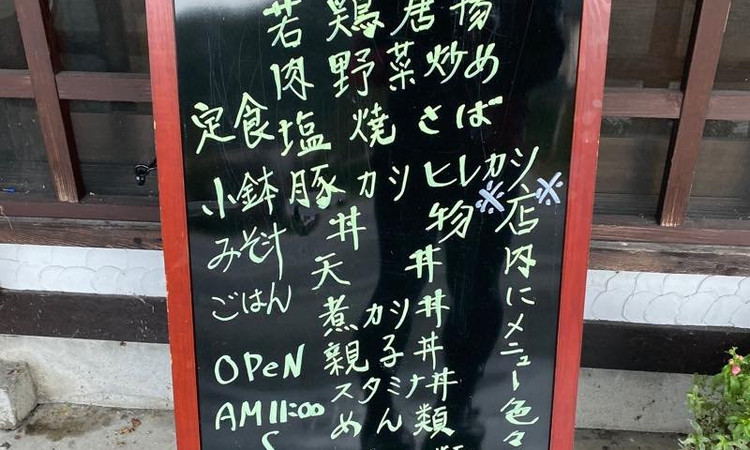 若鶏唐揚
肉野菜炒め
塩焼さば
豚カツ ヒレカツ
丼物
天丼
煮カツ丼
親子丼
スタミナ丼
めん類
定食
小鉢
みそ汁
ごはん
OPeN
AM11:00
※店内にメニュー色々※